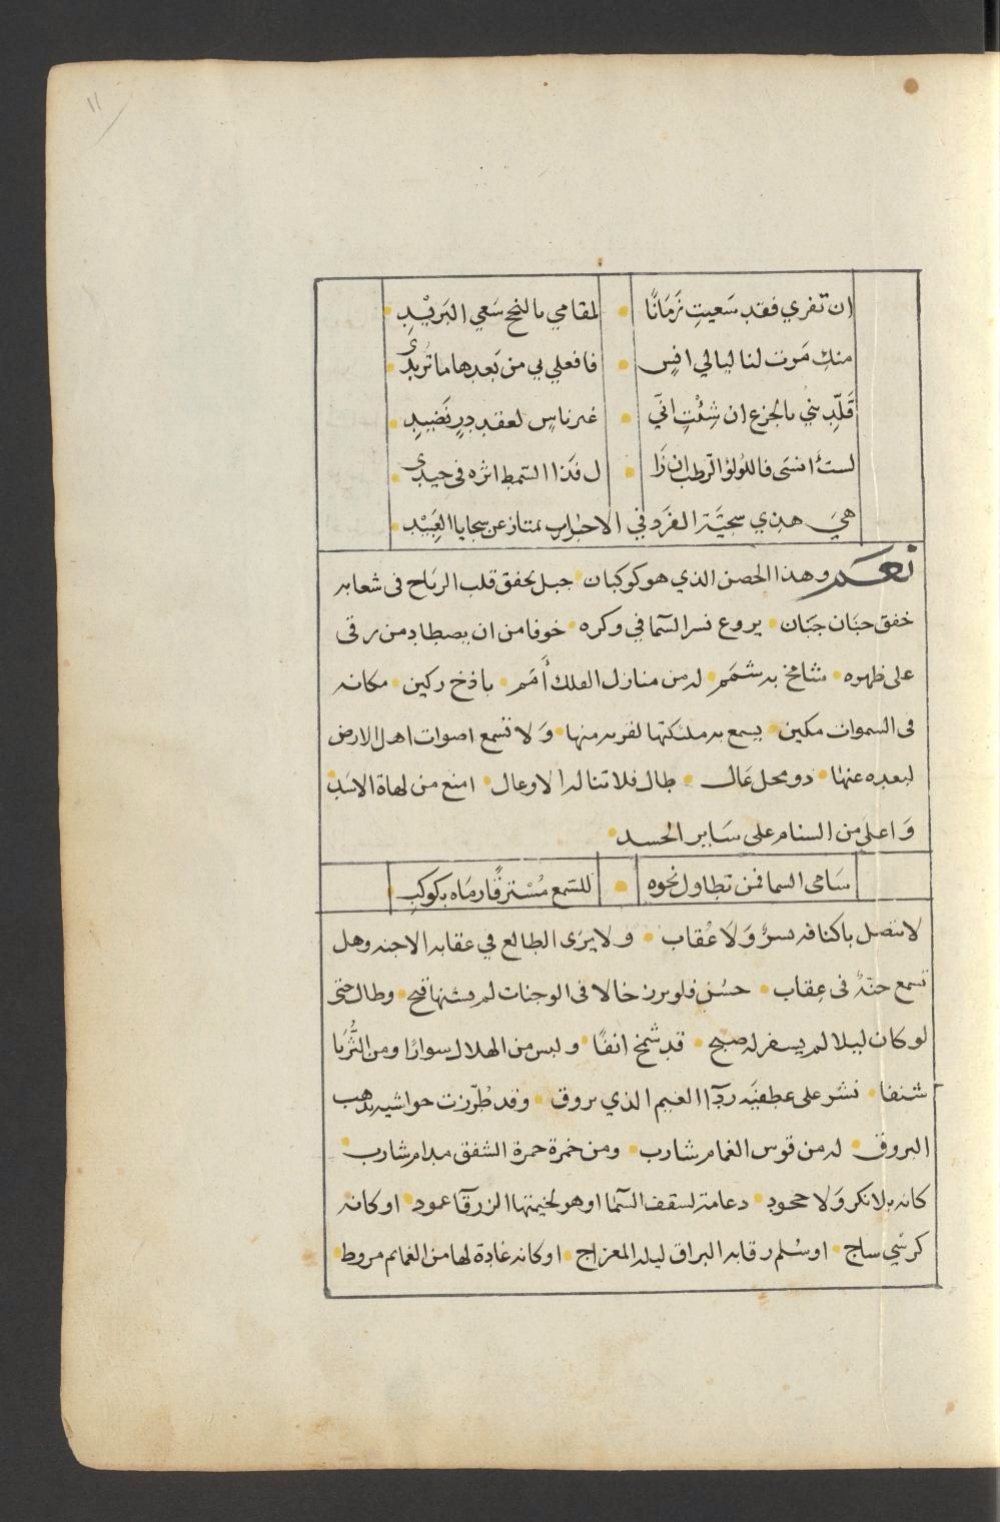 ١١
ان تفري فقد سَعيتِ زَمَانًا • لمقامي بالنجح سَعي البَريْدِ •
منكِ مَرت لنا ليالي افٍس • فافعلي بي من بَعدها ما تُريدي •
قَلِّدِيني بالجزع ان شِئْتِ انّي • غير ناسٍ لعقد درٍ نَضيدِ •
لستُ انسَى فاللولؤ الرطب ان زَا • ل فَذا السمط اثره في جيدي •
هيَ هذي سجيَّة الفَرد في الاحباب يمتاز عن سجايا العَبيْد •
نعَم وهذا الحصن الذي هو كوكبان • جبل يخفق قلب الرياح فى شعابه
خفق جنَان جبَان • يروع نسر السّما في وكره • خوفا من ان يصطاد من رقى
على ظهره • شامخ به شمَم • له من منازل الفلك أَمَم • باذخ ركين • مكانه
فى السموات مكين • يسمع به ملئكتها لقربه منها • وَلا تسمع اصوات اهل الارض
لبعده عنها • ذو محل عَال • طال فلا تناله الاوعال • امنع من لهاة الاسَد
وَاعلى من السنام على سَاير الجسد •
سَامى السما فمن تطاول نحوه • للسَمع مُسْترقًا رمَاه بكوكبِ •
لا تتصل باكنافه نسرٌ وَلَا عُقاب • ولا يرَى الطالع في عقابه الاجنه وهل
تسمع جنّةٌ فى عِقاب • حسُن فلو برز خالا فى الوجنات لم يشنها قبح • وطال حتى
لو كان ليلا لم يسفر له صبح • قد شمخ انفًا • ولبس من الهلال سوارًا ومن الثُّريا
شنفا • نشر على عطفيَه ردَآ الغيم الذي يروق • وقد طُرّزت حواشيه بذهب
البروق • له من قوس الغمام شارب • ومن خمرة حمرة الشفق مدام شارب •
كانه بلا نكر وَلا جحود • دعامة لسقف السّما او هو لخيمتها الزرقآ عمود • او كانه
كرسّي ساج • او سُلم رقابه البراق ليلة المعراج • او كانه غادة لها من الغمايم مروط •